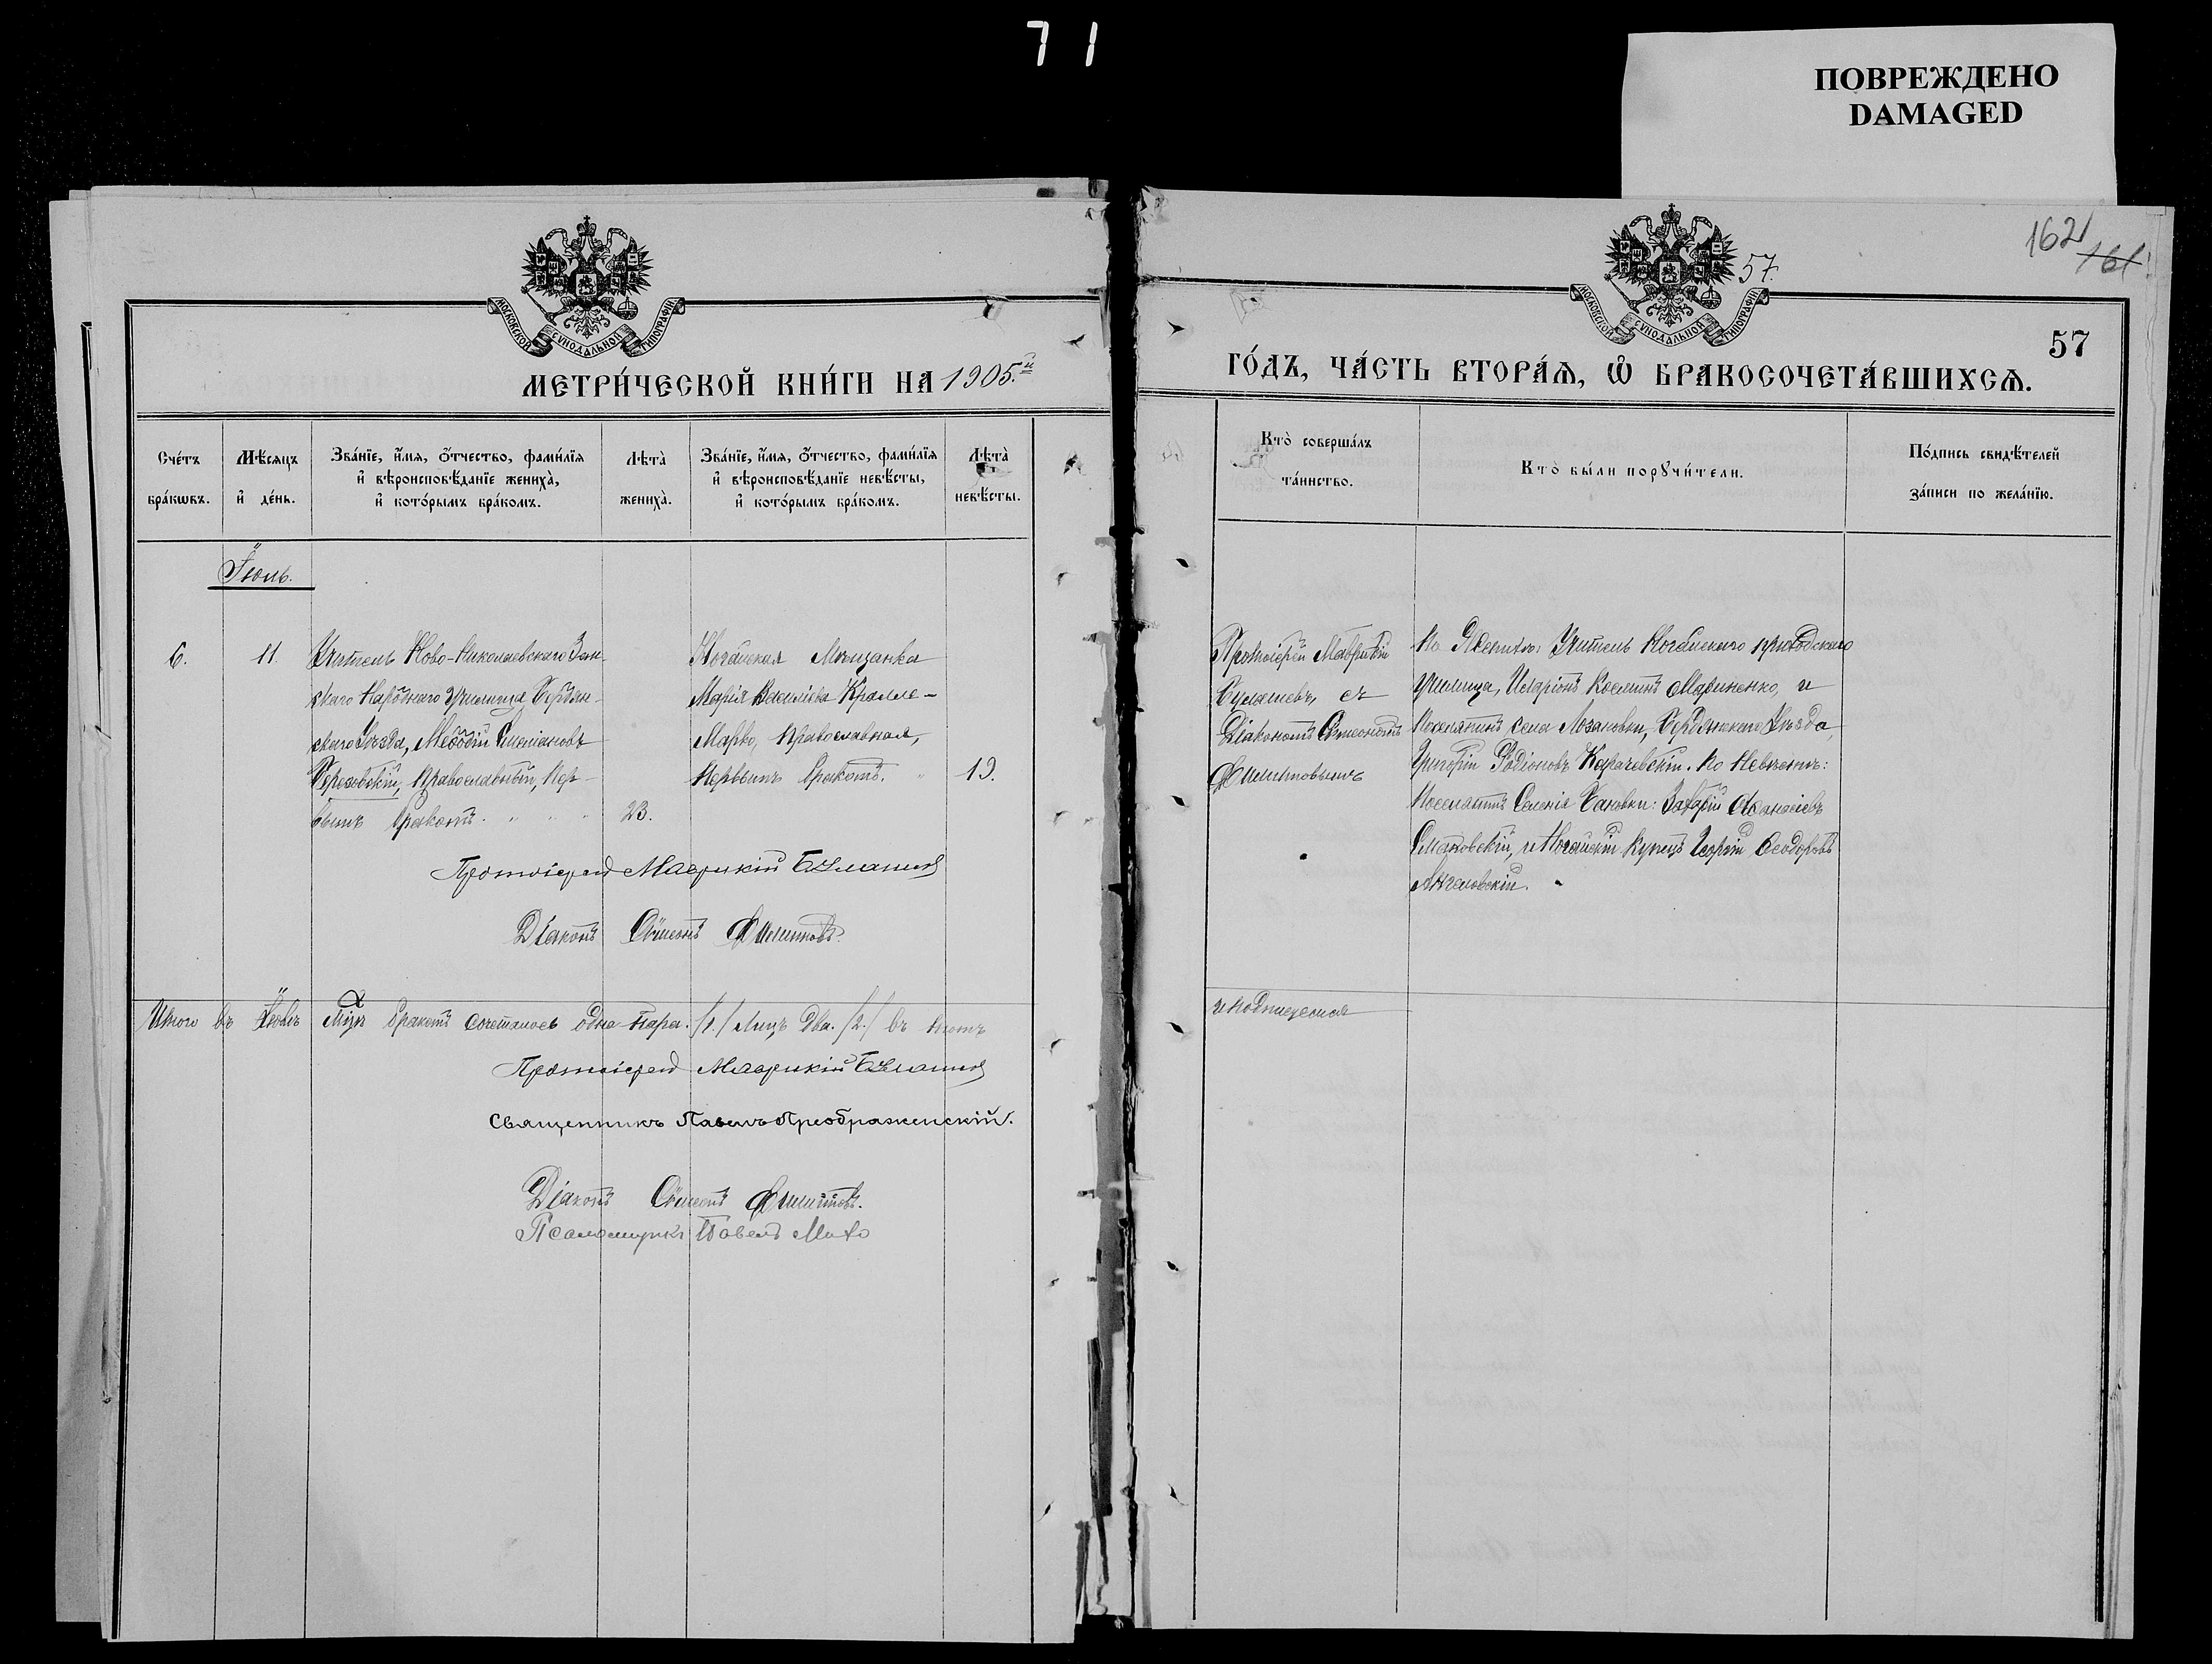 71
ПОВРЕЖДЕНО
DAMAGED
162
161
57.
57
МОСКОВСКОЙ СѴНОДАЛЬНОЙ ТИПОГРАФІИ
МОСКОВСКОЙ СѴНОДАЛЬНОЙ ТИПОГРАФІИ
МЕТРИ́ЧЕСКОЙ КНИ́ГИ НА 1905.й
ГО́ДЪ, ЧА́СТЬ ВТОРА́Ѧ, Ѡ БРАКОСОЧЕТА́ВШИХСѦ.
Сче́тъ бра́кѡвъ.
Мѣ́сяцъ и҆ де́нь.
Зва́нїе, и҆́мя, ѻ҆́тчество, фами́лїя и҆ вѣроисповѣ́данїе жениха̀, и҆ кото́рымъ бра́комъ.
Лѣта̀ жениха̀.
Зва́нїе, и҆́мя, ѻ҆́тчество, фами́лїя и҆ вѣроисповѣ́данїе невѣ́сты, и҆ кото́рымъ бра́комъ.
Лѣта̀ невѣ́сты.
Кто̀ соверша́лъ та́инство.
Кто̀ бы́ли порꙋчи́тели.
По́дпись свидѣ́телей за́писи по жела́нїю.
Іюль.
6.
11.
Учитель Ново-Николаевскаго Зем-
скаго Народнаго Училища Бердян-
скаго Уѣзда, Меѳодій Стефановъ
Березовскій, Православный, Пер-
вымъ бракомъ.
23.
Ногайская Мѣщанка
Марія Василіева Крамле-
Марко, Православная,
Первымъ бракомъ.
19.
Протоіерей Маврикій
Булашевъ, съ
Діакономъ Симеономъ
Филипповымъ
По Женихѣ: Учитель Ногайскаго приходскаго
училища, Иларіонъ Косминъ Мариненко, и
Поселянинъ села Лозановки, Бердянскаго Уѣзда,
Григорій Родіоновъ Карачевскій. По Невѣстѣ:
Поселянинъ Селенія Бановки: Захарій Аѳанасіевъ
Смаковскій, и Ногайскій Купецъ Георгій Ѳеодоровъ
Ангеловскій.
Протоіерей Маврикій Булашевъ
Діаконъ Симеонъ Филипповъ.
Итого въ Іюлѣ мцѣ бракомъ сочеталось одна пара. /1./ Лицъ два. /2./ въ томъ
и подписуемся
Протоіерей Маврикій Булашевъ
Священникъ Павелъ Преображенскій.
Діаконъ Симеонъ Филипповъ.
Псаломщикъ Павелъ Михо